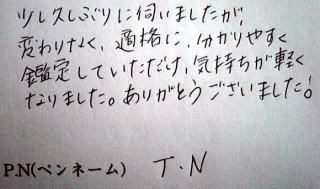 少し久しぶりに伺いましたが、
変わりなく、適格に、分かりやすく
鑑定していただけ、気持ちが軽く
なりました。ありがとうございました!
P.N(ペンネーム) T.N